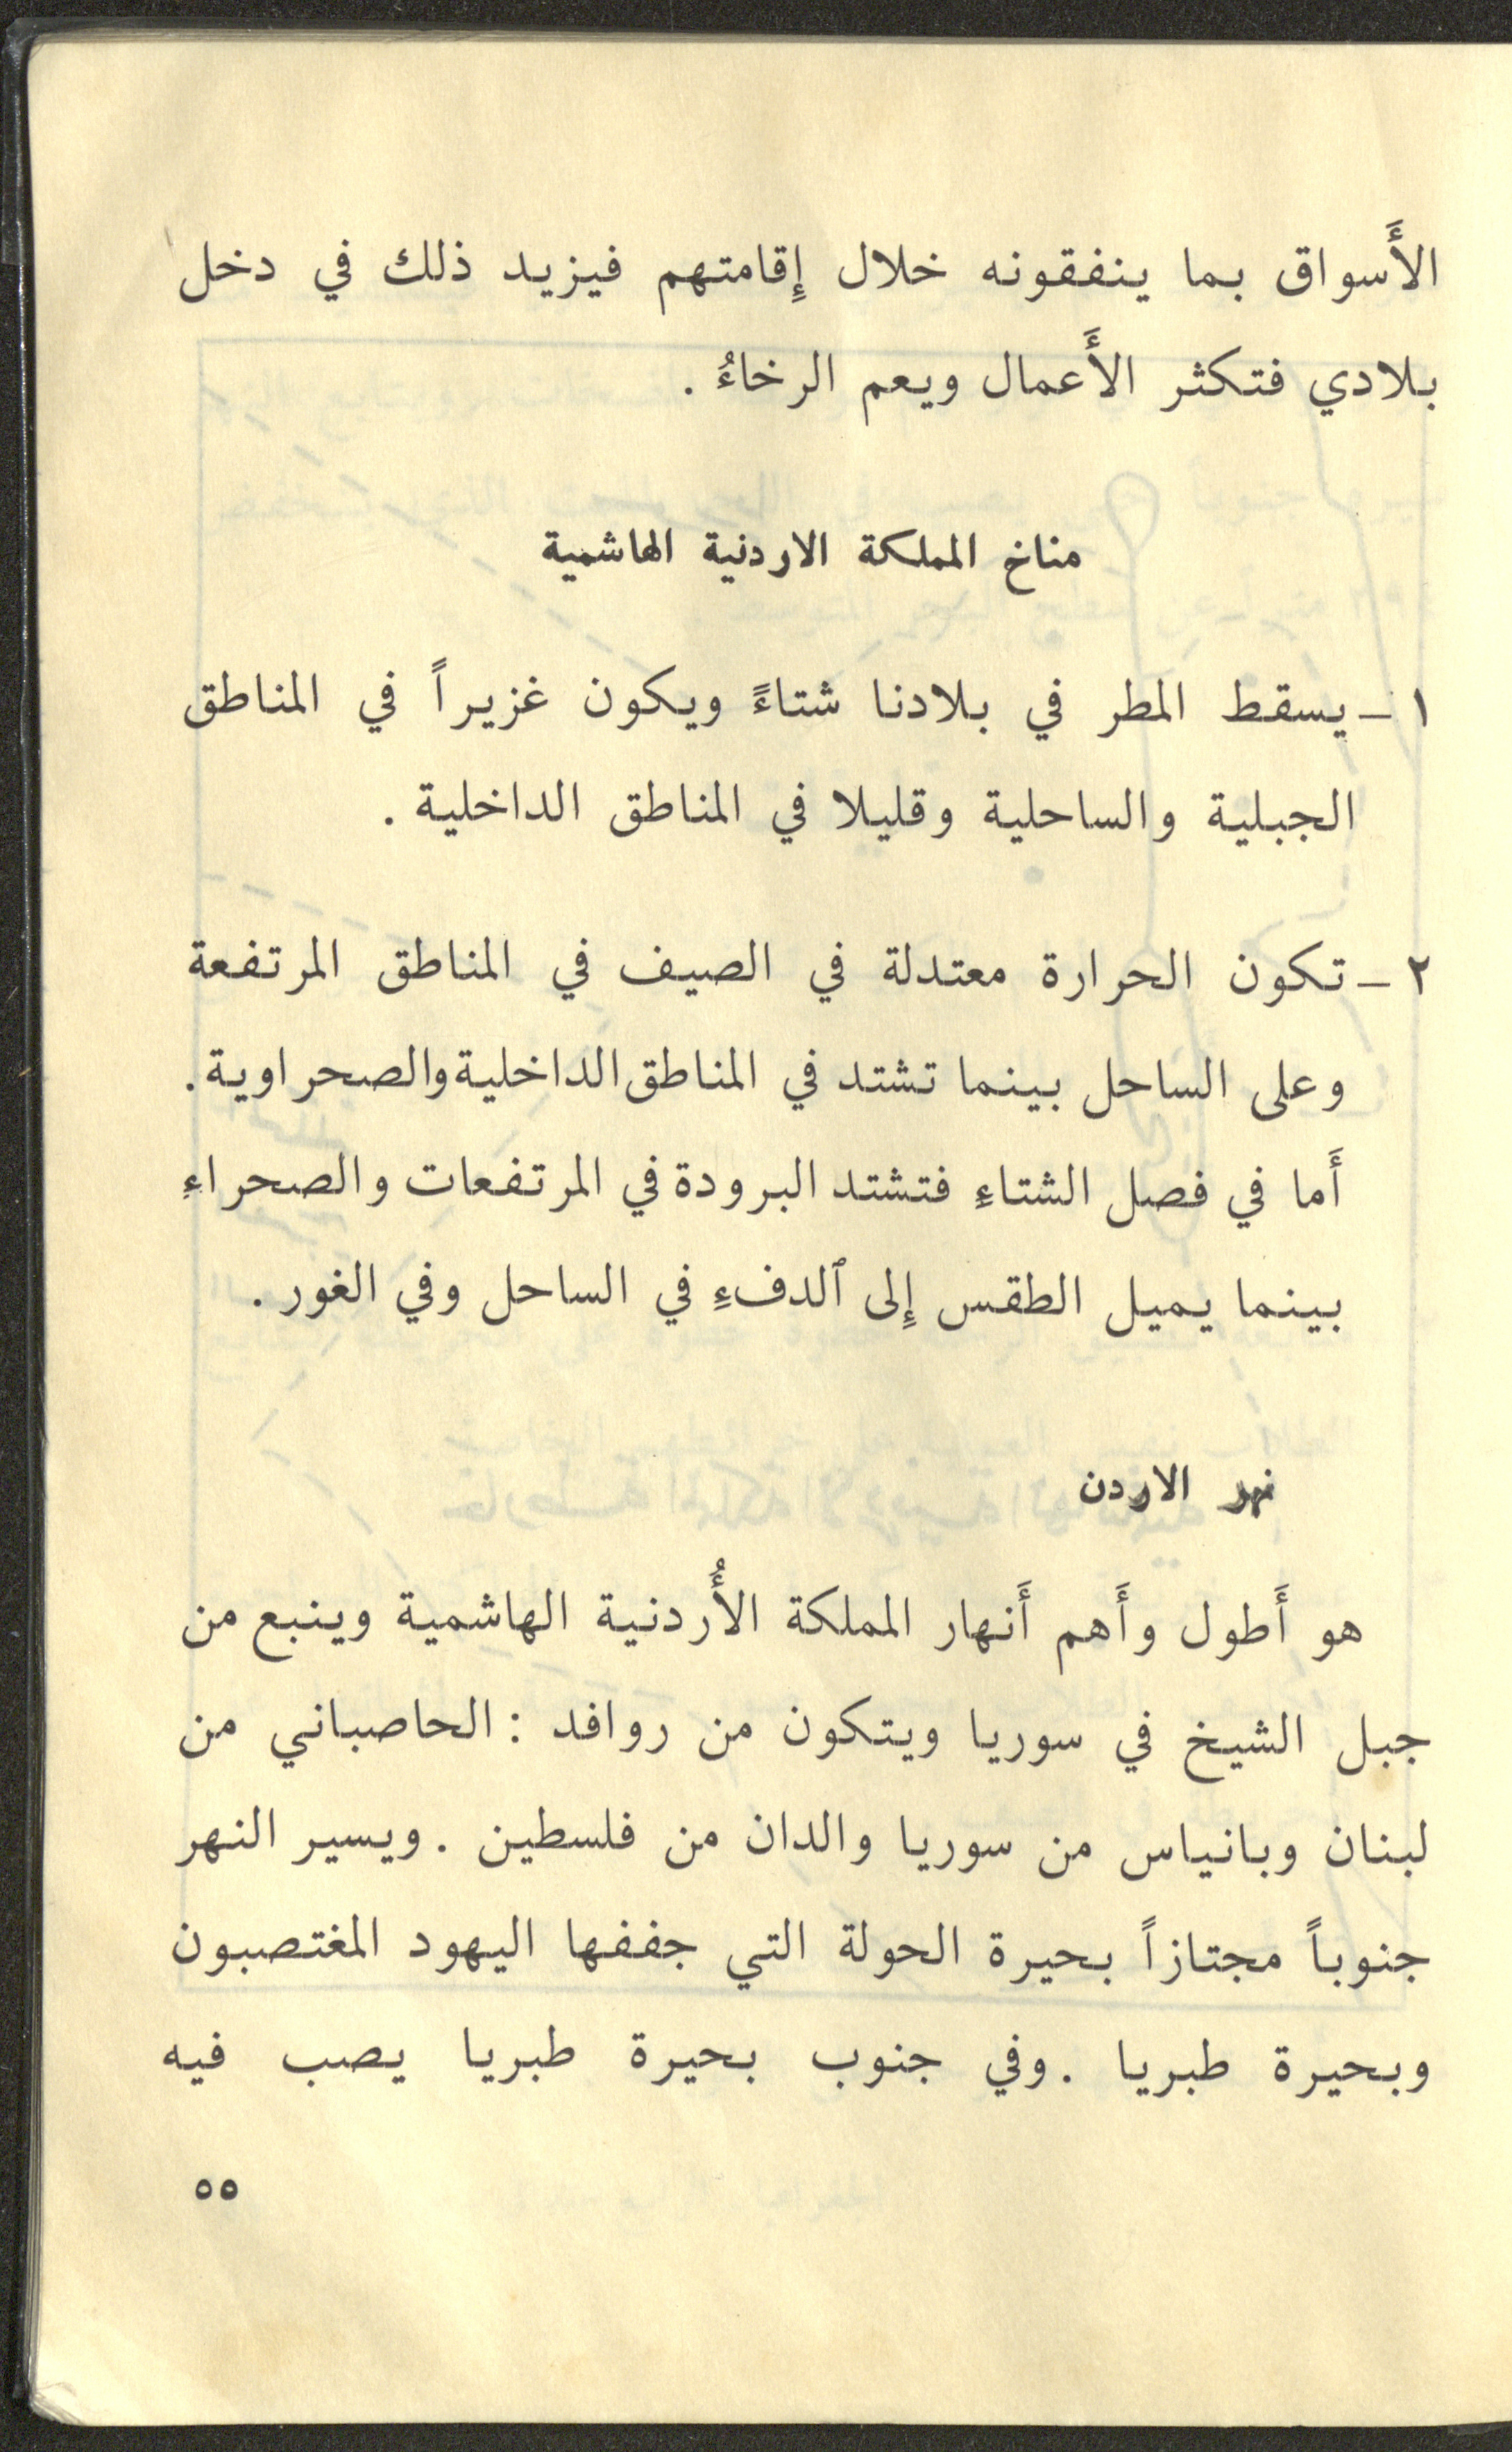 الأَسواق بما ينفقونه خلال إِقامتهم فيزيد ذلك في دخل
بلادي فتكثر الأَعمال ويعم الرخاءُ .
مناخ المملكة الاردنية الهاشمية
١ – يسقط المطر في بلادنا شتاءً ويكون غزيراً في المناطق
الجبلية والساحلية وقليلا في المناطق الداخلية .
٢ – تكون الحرارة معتدلة في الصيف في المناطق المرتفعة
وعلى الساحل بينما تشتد في المناطق الداخلية والصحراوية .
أَما في فصل الشتاءِ فتشتد البرودة في المرتفعات والصحراءِ
بينما يميل الطقس إِلى ٱلدفءِ في الساحل وفي الغور .
نهر الاردن
هو أَطول وأَهم أَنهار المملكة الأُردنية الهاشمية وينبع من
جبل الشيخ في سوريا ويتكون من روافد : الحاصباني من
لبنان وبانياس من سوريا والدان من فلسطين . ويسير النهر
جنوباً مجتازاً بحيرة الحولة التي جففها اليهود المغتصبون
وبحيرة طبريا . وفي جنوب بحيرة طبريا يصب فيه
٥٥